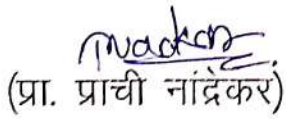 (प्रा. प्राची नांद्रेकर)